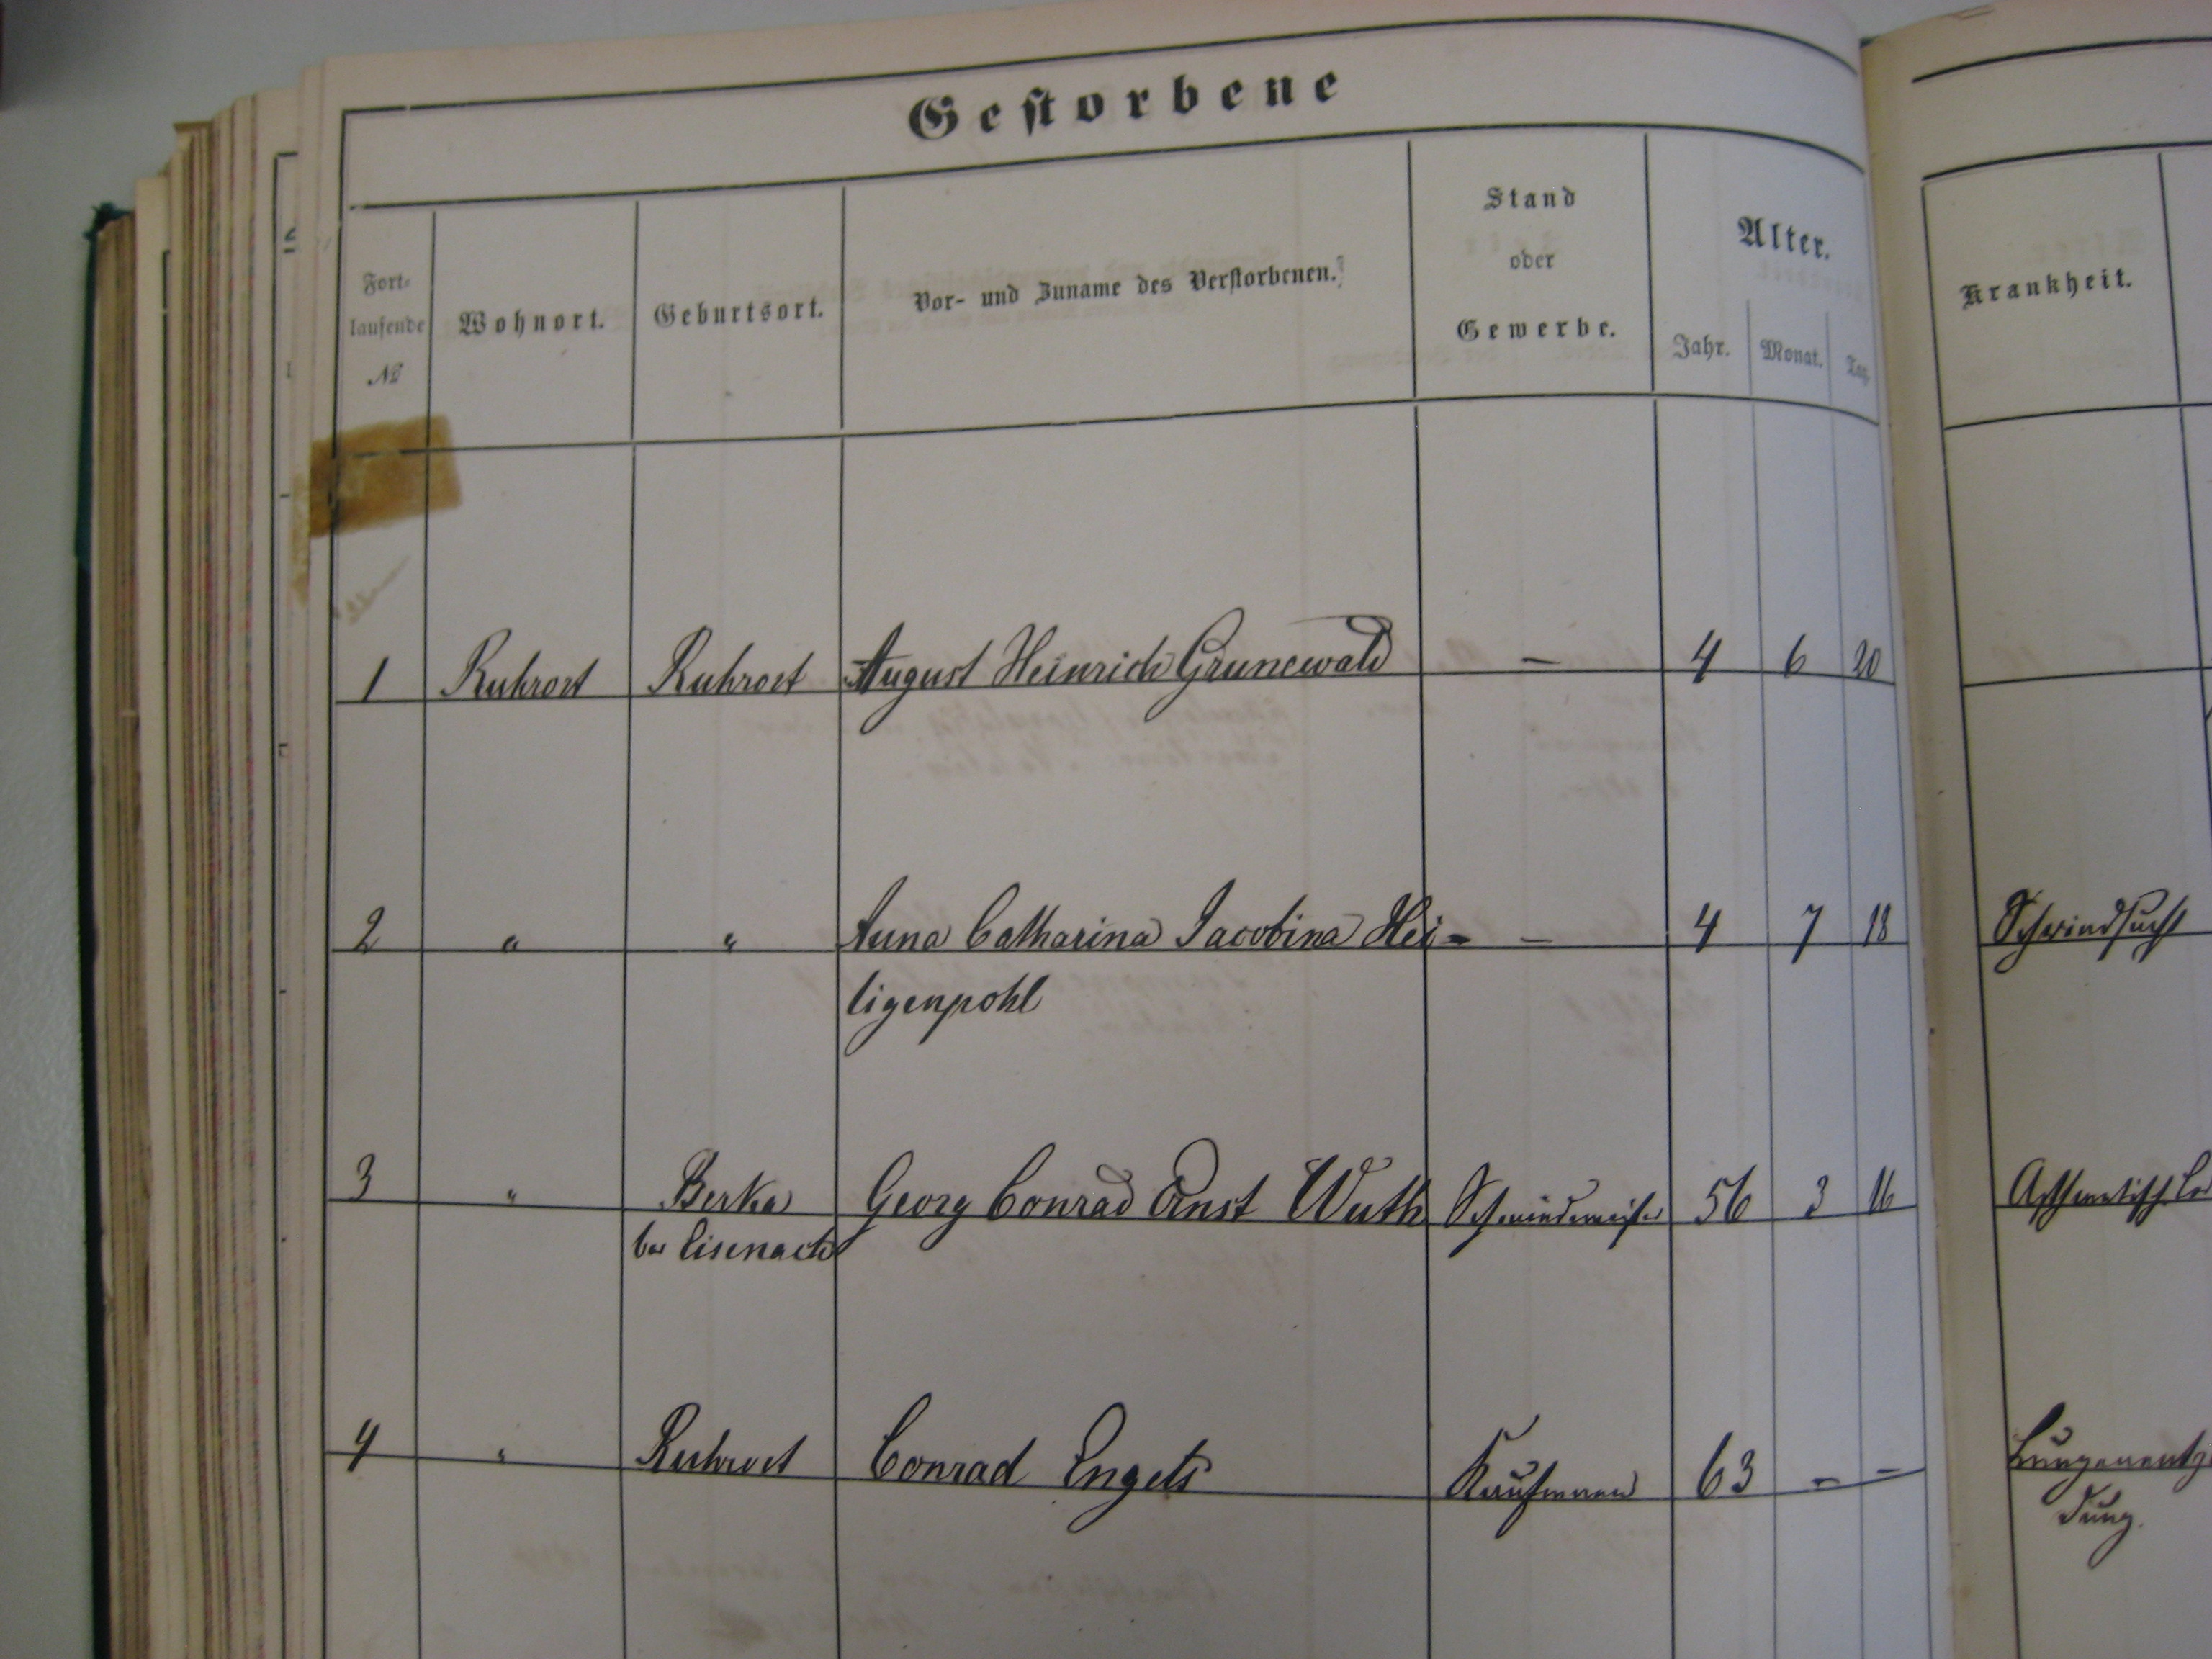 Gestorbene
Fort-
laufende
№
Wohnort.
Geburtsort.
Vor- und Zuname des Verstorbenen.
Stand
oder
Gewerbe.
Alter.
Jahr. Monat. Tag.
Krankheit.
1 Ruhrort Ruhrort August Heinrich Grunewald – 4 6 20
2 " " Anna Catharina Jacobina Hei- – 4 7 18 Schwindsucht
ligenpohl
3 " Berka Georg Conrad Ernst Wuth Schmiedemeister 56 3 16
bei Eisenach
4 " Ruhrort Conrad Engels Kaufmann 63 – – Lungenentzün
dung.